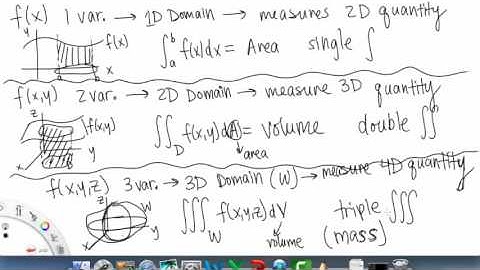 f(x) 1 var. → 1D Domain → measures 2D quantity
y f(x)
a b x
∫_a^b f(x)dx = Area single ∫
f(x,y) 2 var. → 2D Domain → measure 3D quantity
z f(x,y)
y
x
∬_D f(x,y)dA = volume double ∬
area
f(x,y,z) 3 var. → 3D Domain (W) → measure 4D quantity
z W
y
x
∭_W f(x,y,z)dV triple ∭
volume (mass)